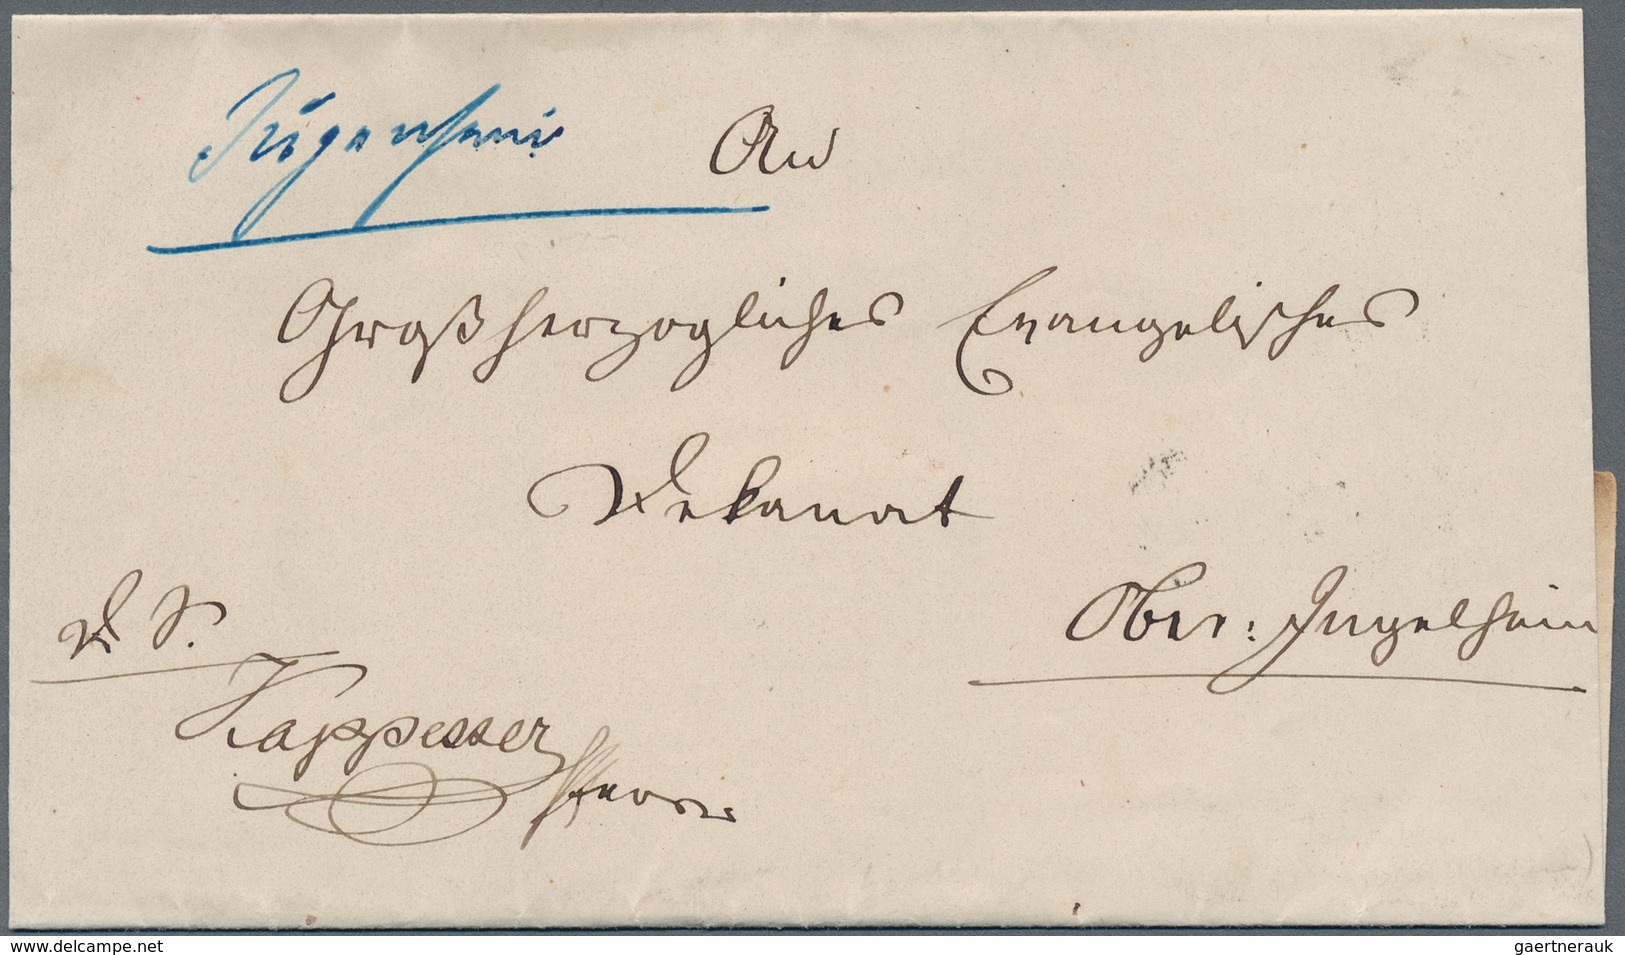 Jügenheim
An
Großherzogliches Evangelisches
Dekanat
D. S.
Ober-Ingelheim
Kappesser
Pfarrer
www.delcampe.net
gaertnerauk